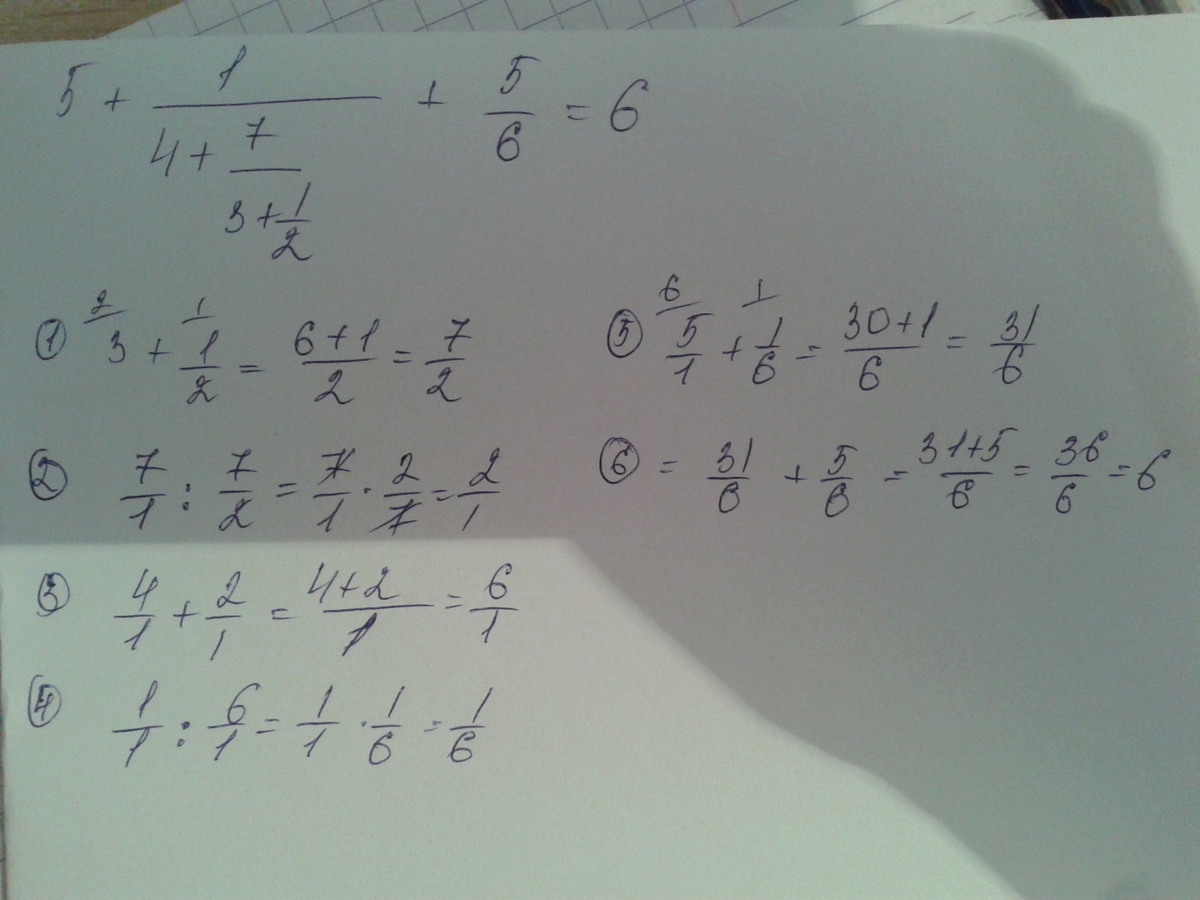 5 + 1/(4 + 7/(3 + 1/2)) + 5/6 = 6
① ²⁄ 3 + ¹⁄ 1/2 = (6+1)/2 = 7/2
② 7/1 : 7/2 = 7/1 · 2/7 = 2/1
③ 4/1 + 2/1 = (4+2)/1 = 6/1
④ 1/1 : 6/1 = 1/1 · 1/6 = 1/6
⑤ ⁶⁄ 5/1 + ¹⁄ 1/6 = (30+1)/6 = 31/6
⑥ = 31/6 + 5/6 = (31+5)/6 = 36/6 = 6